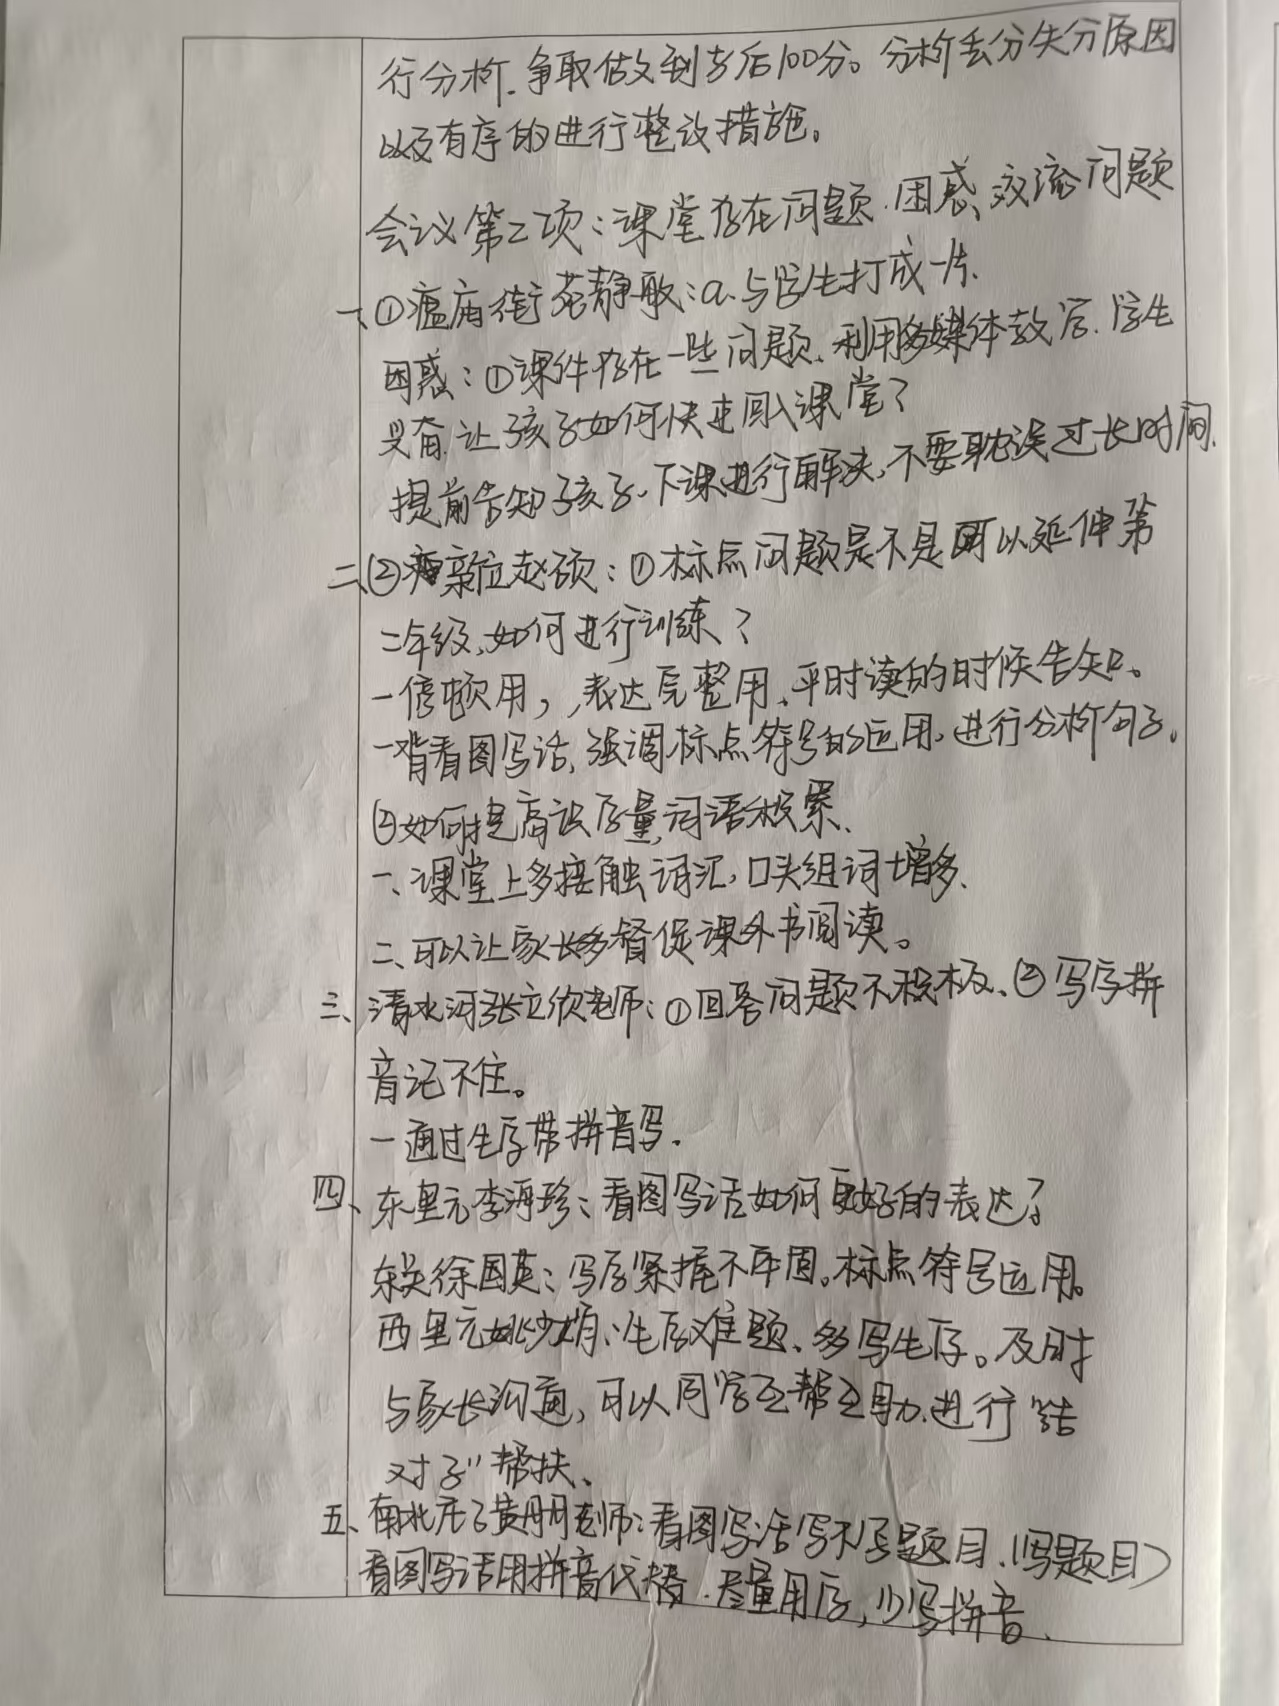 行分析.争取做到考后100分。分析丢分失分原因
以及有序的进行整改措施。
会议第二项:课堂存在问题.困惑、交流问题
一、①瘟庙街苑静敏:a.与学生打成一片.
困惑:①课件存在一些问题、利用多媒体教学.学生
兴奋.让孩子如何快速回入课堂?
提前告知孩子.下课进行解决,不要耽误过长时间.
二、②新位赵硕:①标点问题是不是可以延伸第
二年级,如何进行训练?
一停顿用,,表达完整用、平时读的时候告知。
一背看图写话,强调标点符号的运用,进行分析句子。
②如何提高识字量,词语积累、
一、课堂上多接触词汇,口头组词增多.
二、可以让家长多督促课外书阅读。
三、清水河张立欣老师:①回答问题不积极、②写字拼
音记不住。
一通过生字带拼音写.
四、东里元李海珍:看图写话如何更好的表达?
东关徐国英:写字紧握不牢固。标点符号运用。
西里元姚少娟:生字难题、多写生字。及时
与家长沟通,可以同学互帮互助.进行“结
对子”帮扶、
五、南北庄子黄丽老师:看图写话写不写题目.(写题目)
看图写话用拼音代替.尽量用字,少写拼音.